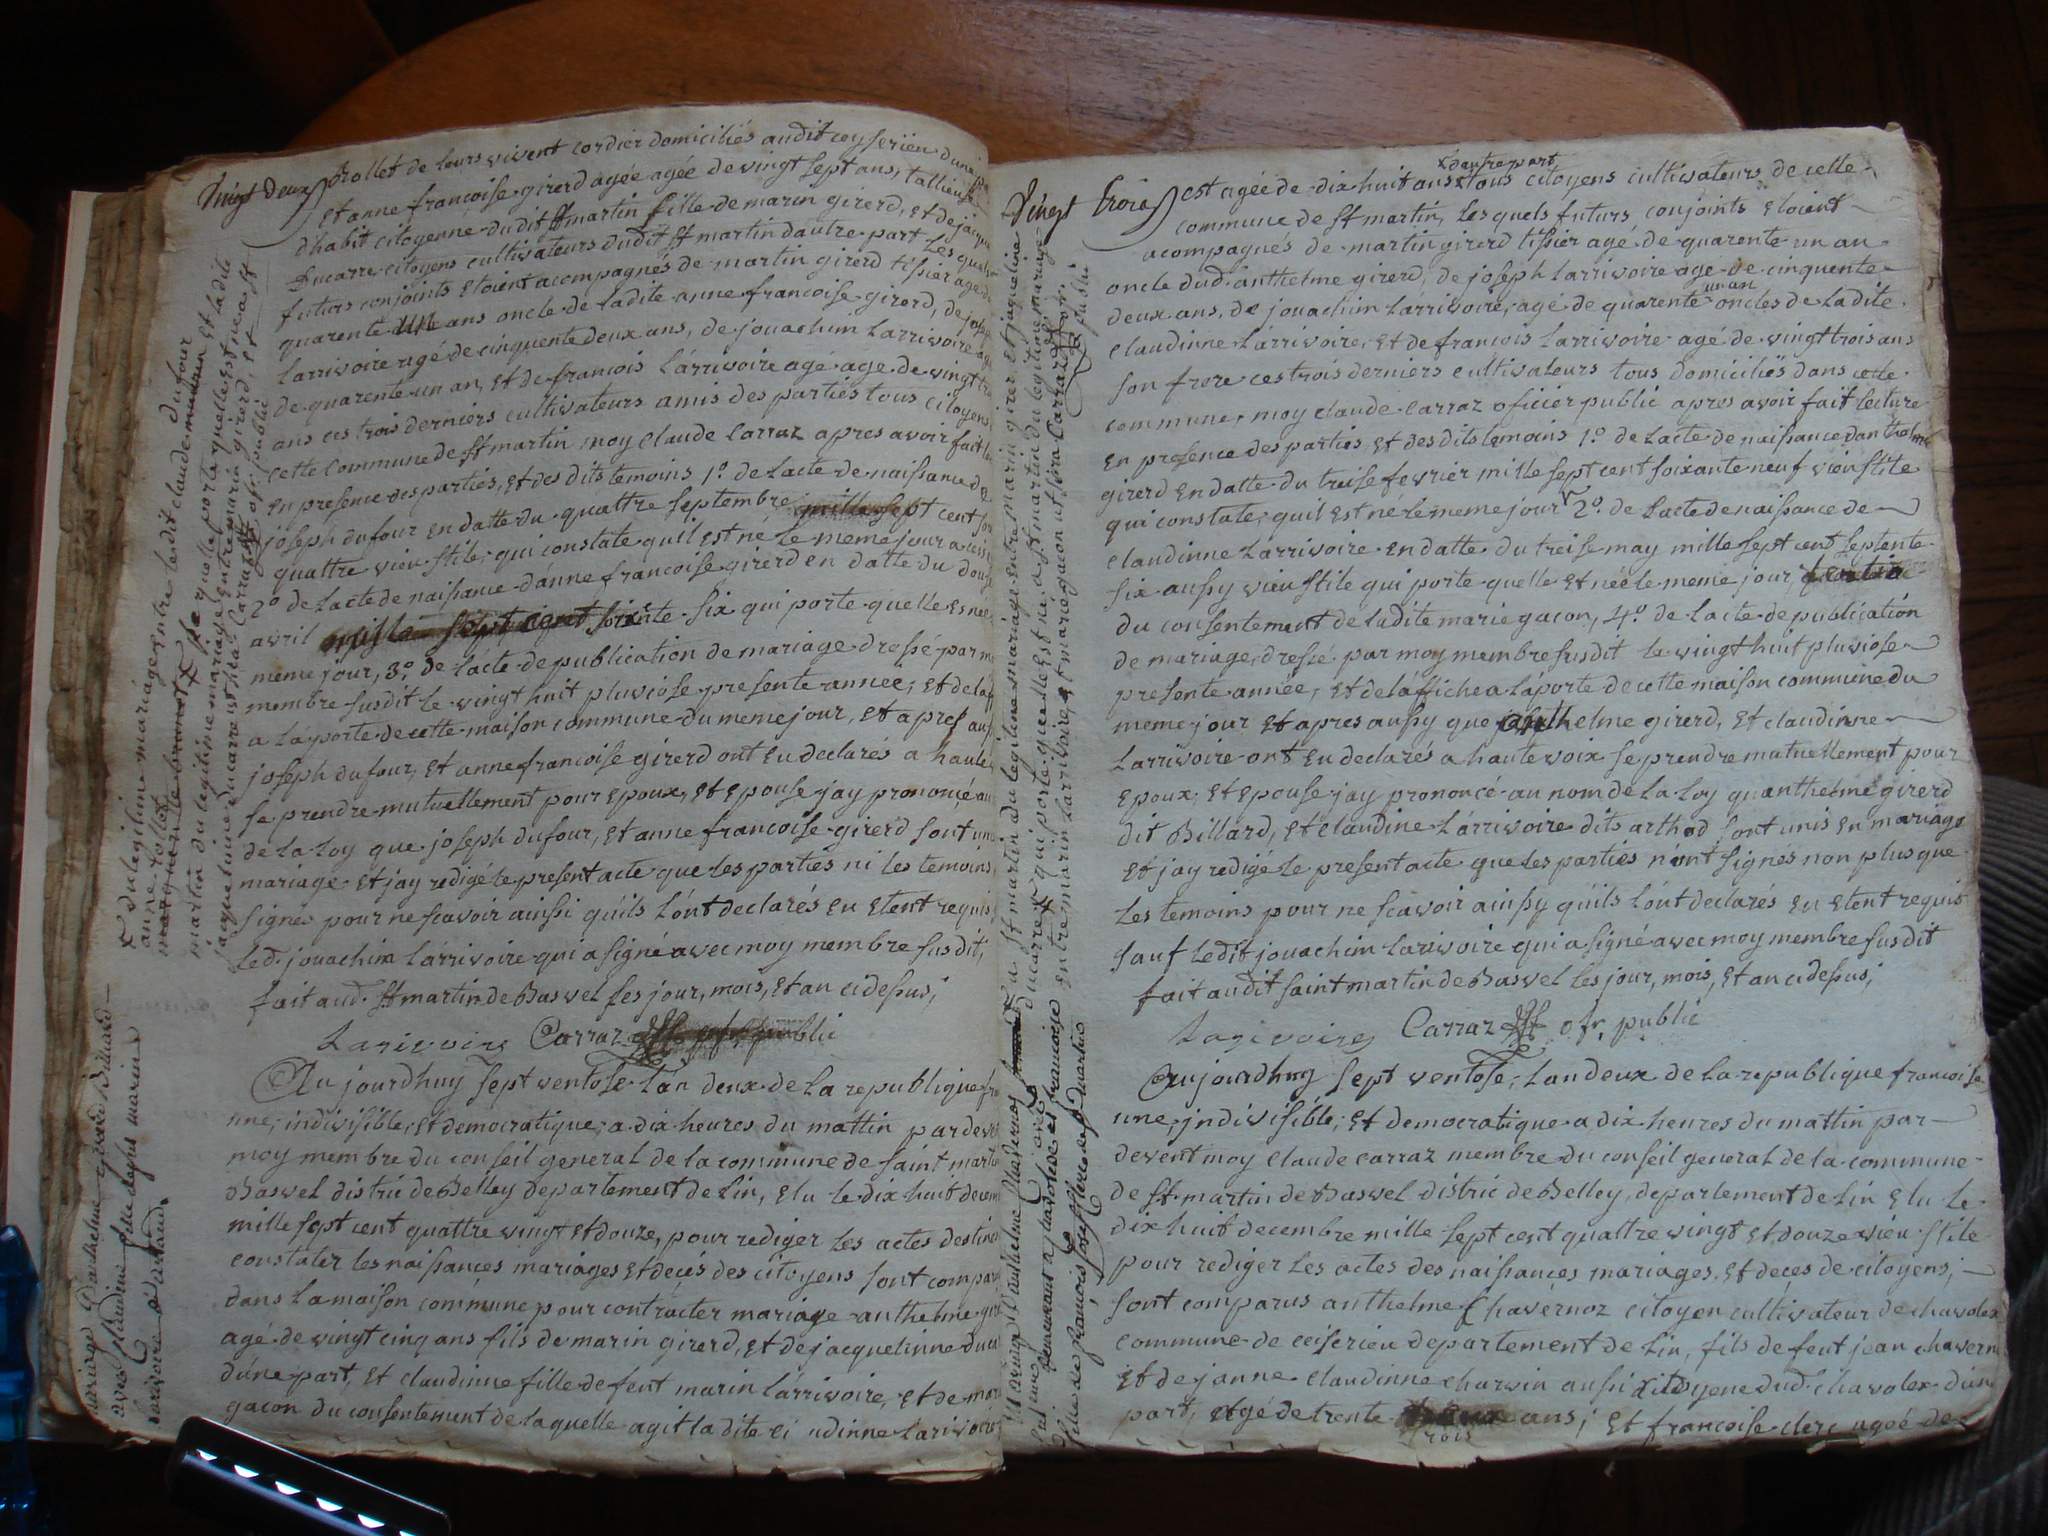 vingt deux
rollet de leurs vivent cordier domiciliés audit ceyserieu dune pa
Et anne francoise girerd agée agée de vingt sept ans, tallieuse
dhabit citoyenne dudit st martin fille de marin girerd, et de jacqu
Ducarre citoyens cultivateurs dudit st martin dautre part Les quels
futurs conjoints etoient acompagnés de martin girerd tissier agé de
quarente un ans oncle de ladite anne francoise girerd, de josep
Larrivoire agé de cinquente deux ans, de jouachim Larrivoire agé
de quarente un an, et de francois Larrivoire agé age de vingt tro
ans ces trois derniers cultivateurs amis des partiés tous citoyens
cette commune de st martin moy claude carraz apres avoir fait lec
en presence des partiés, et des dits temoins 1º. de Lacte de naissance de
joseph dufour en datte du quattre septembre mille sept cent soi
quattre vieu stile, qui constate quil est né le meme jour
2º de Lacte de naissance danne francoise girerd en datte du douse
avril mille sept cent soixente six qui porte quelle es née
meme jour, 3º. de Lacte de publication de mariage dressé par m
membre susdit le vingt huit pluviose presente année, et de laf
a la porte de cette maison commune du meme jour, et apres aus
joseph dufour, et anne francoise girerd ont eu declarés a haute
se prendre mutuellement pour epoux, et epouse jay prononcé au
de la Loy que joseph dufour, et anne francoise girerd sont unis
mariage et jay redigé le present acte que les partiés ni les temoins
signés pour ne scavoir ainsi quils Lont declarés eu etent requis
led. jouachim Larrivoire qui a signé avec moy membre susdit,
fait aud. st martin de Bavel les jour, mois, et an cidessus,
Larivoire Carraz off public
Au jourdhuy sept ventose lan deux de la republique fra
une, indivisible, et democratique, a dix heures du mattin pardev
moy membre du conseil general de la commune de saint mart
Bavvel distric de Belley departement de lin, elu le dix huit decem
mille sept cent quattre vingt et douze, pour rediger les actes destines
constater les naissances mariages et deces des citoyens sont compar
dans la maison commune pour contracter mariage anthelme gir
agé de vingt cinq ans fils de marin girerd, et de jacquelinne duca
dune part, et claudinne fille de feut marin Larrivoire, et de mar
gacon du consentement de laquelle agit ladite cl udinne Larivoire
X du legitime mariage entre lesdit claude dufour
anne rollet
martin du legitime mariage entre marin girerd, et
jaquelinne ducarre
Carraz off public
mariage Danthelme girerd Billiard
avec Claudine fille defus marin
Larivoire d'artaud
vingt trois
X dautre part
est agée de dix huit ans X tous citoyens cultivateurs de cette
commune de st martin, les quels futurs conjoints etoient
acompagnés de martin girerd tissier agé de quarente un an
oncle dud. anthelme girerd, de joseph larrivoire age de cinquente
un an
deux ans, de jouachim larrivoire, agé de quarente oncles de ladite
claudinne Larrivoire, et de francois Larrivoire agé de vingt trois ans
son frere ces trois derniers cultivateurs tous domiciliés dans cette
commune, moy claude carraz oficier public apres avoir fait lecture
en presence des partiés, et des dits temoins 1º. de Lacte de naissance danthelme
girerd en datte du treise fevrier mille sept cent soixante neuf vieu stile
qui constate, quil est né le meme jour 2º. de Lacte de naissance de
claudinne Larrivoire en datte du treise may mille sept cent septente
six aussy vieu stile qui porte quelle et née le meme jour
du consentement de ladite marie gacon, 4º. de Lacte de publication
de mariage, dressé par moy membre susdit le vingt huit pluviose
presente année, et de laffiche a laporte de cette maison commune du
meme jour et apres aussy que anthelme girerd, et claudinne
Larrivoire ont eu declarés a haute voix se prendre mutuellement pour
epoux, et epouse jay prononcé au nom de la Loy quanthelme girerd
dit Billard, et claudine Larrivoire dits arthod sont unis en mariage
et jay redigé le present acte que les partiés n'ont signés non plus que
les temoins pour ne scavoir ainssy quils lont declarés eu etent requis
sauf ledit jouachim larivoire qui a signé avec moy membre susdit
fait audit saint martin de Bavvel les jour, mois, et an cidessus,
Larivoire Carraz ofr. public
Aujourdhuy sept ventose, lan deux de la republique francoise
une, indivisible, et democratique a dix heures du mattin par
devent moy claude carraz membre du conseil general de la commune
de st martin de Bavvel distric de Belley, departement de lin elu le
dix huit decembre mille sept cent quattre vingt et douze vieu stile
pour rediger les actes des naissances mariages, et deces de citoyens,
sont comparus anthelme Chavernoz citoyen cultivateur de chavolex
commune de ceiserieu departement de lin, fils de feut jean chavern
et de janne claudinne charvin aussi citoyene dud. chavolex dune
part, agé de trente trois ans, et francoise clerc ageé de
Mariage D'anthelme Chavernoz
demeurant a chavolex et francoise
fille de francois joseph clerc de st martin
a st martin du legitime mariage entre marin girerd et jaqueline
ducarre, X qui porte quelle est née a st martin du legitime mariage
entre marin Larrivoire et marie gacon
Carraz ofr. public